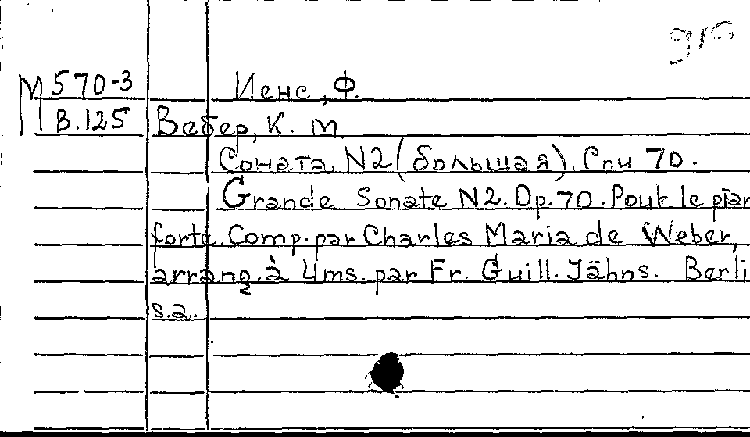 915
М 570-3 Иенс, Ф.
В.125 Вебер, К. М
Соната N2 (большая) Соч 70.
Grande Sonate N2. Op. 70. Pour le pian
forte. Comp. par Charles Maria de Weber,
arrang. à 4ms. par Fr. Guill. Jähns. Berli
s.a.